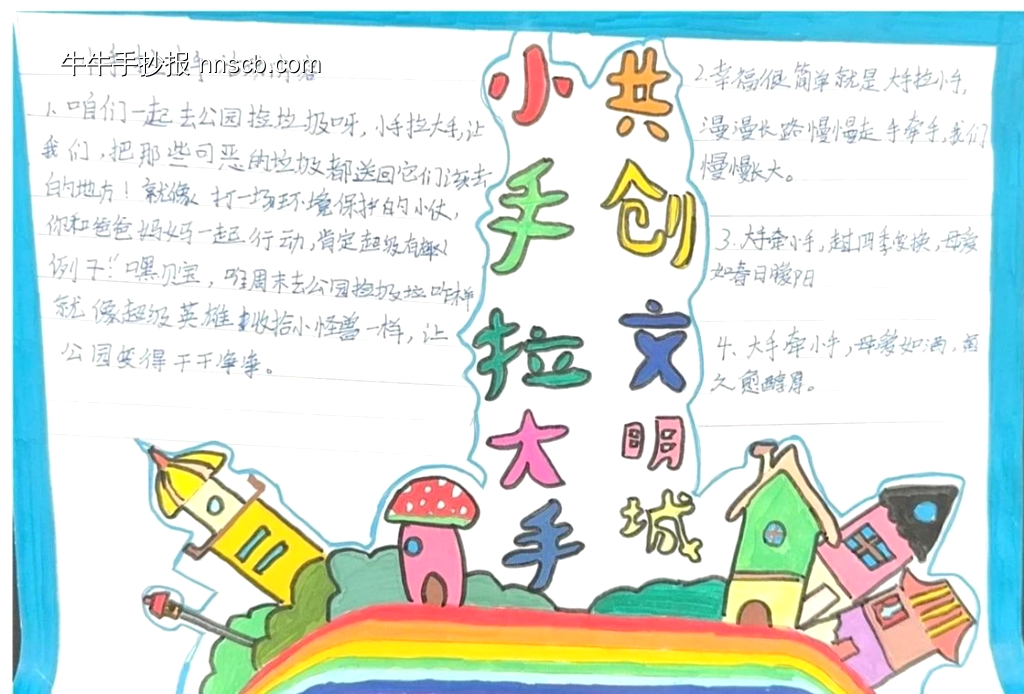 牛牛手抄报 nnscb.com
1、咱们一起去公园捡垃圾呀，小手拉大手，让
我们，把那些可恶的垃圾都送回它们该去
的地方！就像打一场环境保护的小仗，
你和爸爸妈妈一起行动，肯定超级有趣！
例子："嘿贝宝，咱周末去公园捡垃圾咋样
就像超级英雄收拾小怪兽一样，让
公园变得干干净净。
小手拉大手
共创文明城
2.幸福很简单就是大手拉小手，
漫漫长路慢慢走手牵手，我们
慢慢长大。
3.大手牵小手，四季变换，母爱
如春日暖阳
4、大手牵小手，母爱如酒，
久愈醇厚。